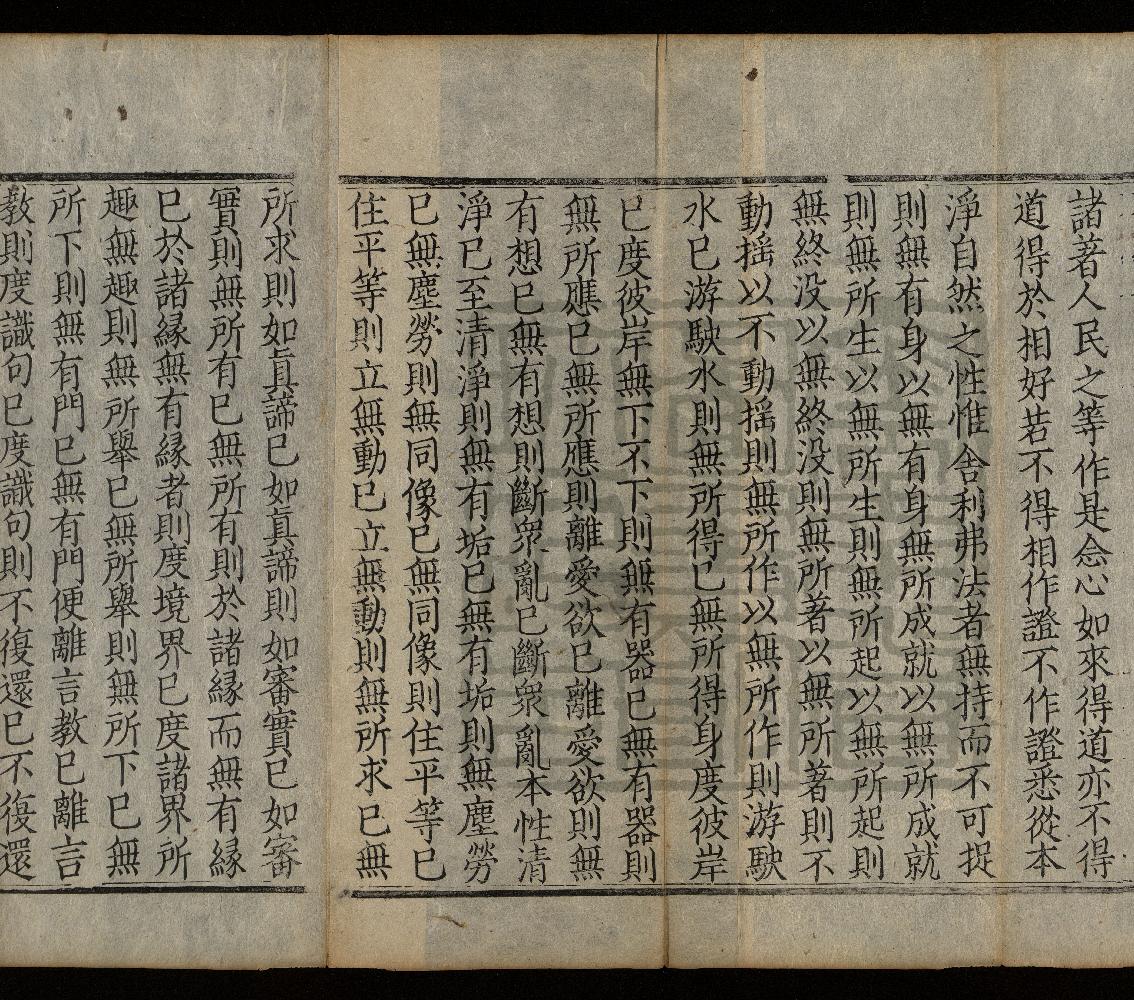 諸著人民之等作是念心如來得道亦不得
道得於相好若不得相作證不作證悉從本
淨自然之性惟舍利弗法者無持而不可捉
則無有身以無有身無所成就以無所成就
則無所生以無所生則無所起以無所起則
無終没以無終没則無所著以無所著則不
動揺以不動揺則無所作以無所作則游駛
水已游駛水則無所得已無所得身度彼岸
已度彼岸無下不下則無有器已無有器則
無所應已無所應則離愛欲已離愛欲則無
有想已無有想則斷衆亂已斷衆亂本性清
淨已至清淨則無有垢已無有垢則無塵勞
已無塵勞則無同像已無同像則住平等已
住平等則立無動已立無動則無所求已無
所求則如眞諦已如眞諦則如審實已如審
實則無所有已無所有則於諸緣而無有緣
已於諸緣無有緣者則度境界已度諸界所
趣無趣則無所舉已無所舉則無所下已無
所下則無有門已無有門便離言教已離言
教則度識句已度識句則不復還已不復還